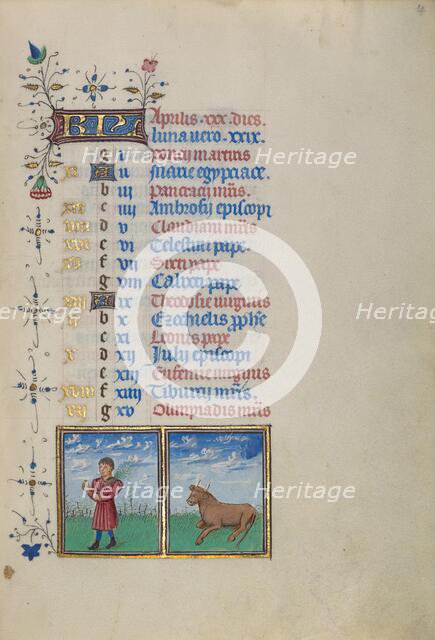 4
KL Aprilis · xxx · dies.
luna uero · xxix.
g
xi A ii Marie egypciace.
b iii Pancracij mris.
c iiii Ambrosij episcopi
d v Claudiani mris
e vi Celestini pape.
f vii Sixti pape
g viii Calixti pape
A ix Theodosie uirginis
b x Ezechielis pphe
c xi Leonis pape
x d xii Julij episcopi
e xiii Eufemie uirginis
xviii f xiiii Tiburcij mris.
vii g xv Olimpiadis mris
Heritage
Heritage
Heritage
Heritage
Heritage
Heritage
Heritage
Heritage